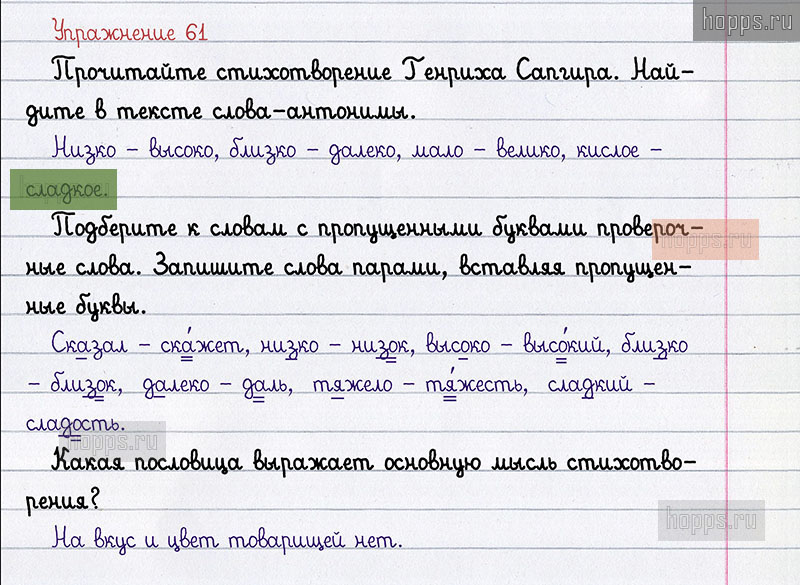 hopps.ru
Упражнение 61
Прочитайте стихотворение Генриха Сапгира. Най-
дите в тексте слова-антонимы.
Низко – высоко, близко – далеко, мало – велико, кислое –
сладкое.
Подберите к словам с пропущенными буквами провероч-
hopps.ru
ные слова. Запишите слова парами, вставляя пропущен-
ные буквы.
Сказал – ска́жет, низко – низок, высоко – высо́кий, близко
– близок, далеко – даль, тяжело – тя́жесть, сладкий –
сладость.
hopps.ru
Какая пословица выражает основную мысль стихотво-
рения?
hopps.ru
На вкус и цвет товарищей нет.